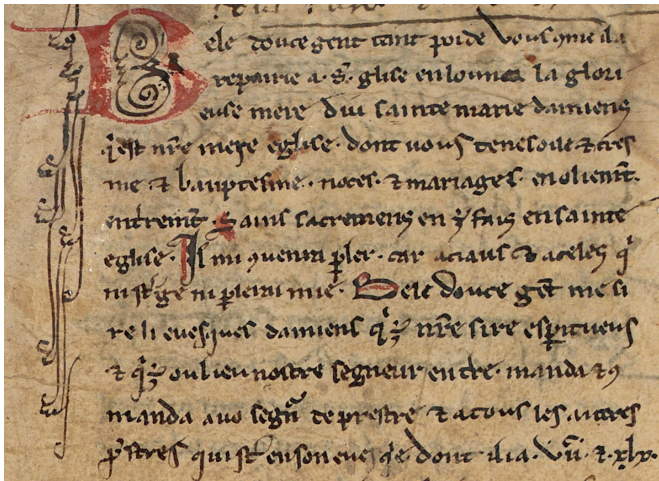 Bele douce gent tant poide vous q̃me il a
repairie a. sͣ. glise en lounor la glori
euse mere diu sainte marie damiens
q̉ est nr̃e mere eglise. dont vous tenes oile & cres
me & bauptesme. noces. & mariages. enoliem̃t.
enterrem̃t. & aus sacremens en sainte
eglise. Il mi ꝯuenra ꝑler. car a ciaus & a celes q̉
ni sͭ ge ni ꝑlerai mie. Bele douce gẽt me si
re li evesques damiens nr̃e sire esꝑituеus
& ou lieu nostre segneur en tre. manda & ꝯ
manda a vo segñ te prestre & a tous les autres
p̉stres qui sͭ en son evesq̉e. dont il i a. & .xlx.